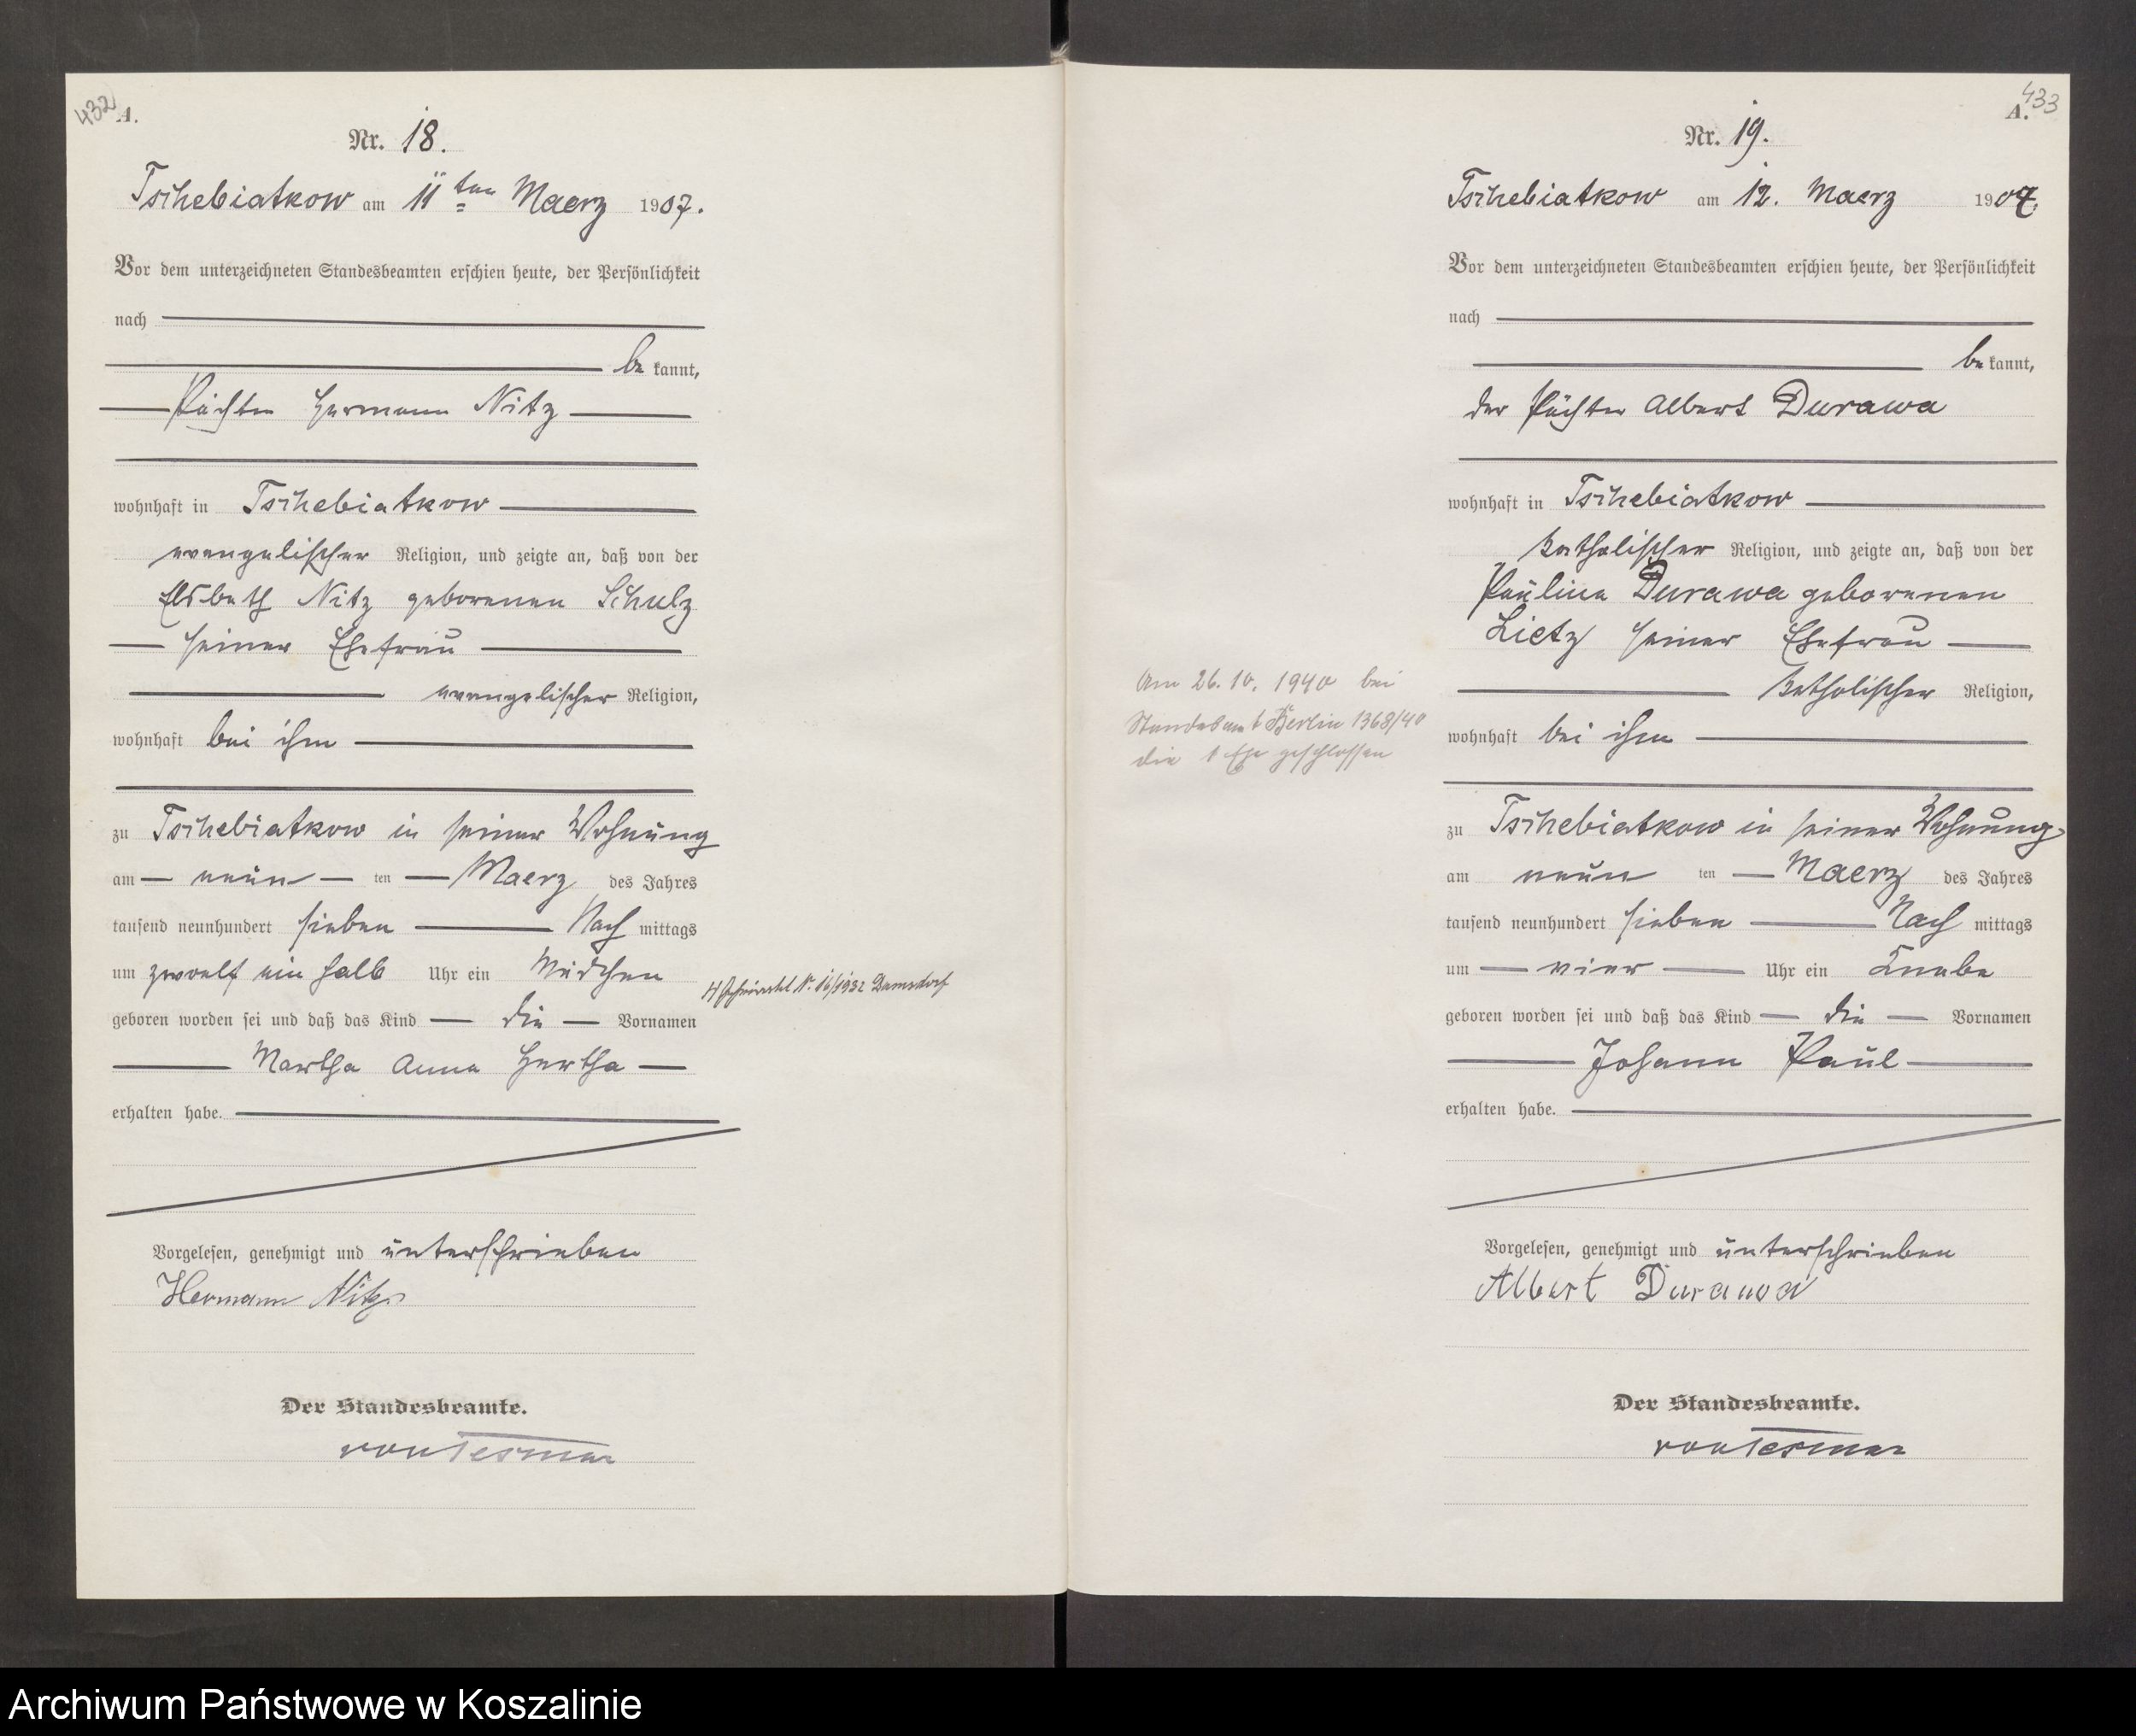 432
A.
Nr. 18.
Tschebiatkow am 11ten Maerz 1907.
Vor dem unterzeichneten Standesbeamten erschien heute, der Persönlichkeit
nach
be kannt,
Pächter Hermann Nitz
wohnhaft in Tschebiatkow
evangelischer Religion, und zeigte an, daß von der
Elsbeth Nitz geborenen Schulz
seiner Ehefrau
evangelischer Religion,
wohnhaft bei ihm
zu Tschebiatkow in seiner Wohnung
am neun ten Maerz des Jahres
tausend neunhundert sieben Nach mittags
um zwoelf ein halb Uhr ein Mädchen
geboren worden sei und daß das Kind die Vornamen
Martha Anna Hertha
erhalten habe.
Vorgelesen, genehmigt und unterschrieben
Hermann Nitz
Der Standesbeamte.
von Tesmar
16/1932 Damsdorf
433
A.
Nr. 19.
Tschebiatkow am 12. Maerz 1907.
Vor dem unterzeichneten Standesbeamten erschien heute, der Persönlichkeit
nach
be kannt,
der Pächter Albert Durawa
wohnhaft in Tschebiatkow
katholischer Religion, und zeigte an, daß von der
Pauline Durawa geborenen
Lietz seiner Ehefrau
katholischer Religion,
wohnhaft bei ihm
zu Tschebiatkow in seiner Wohnung
am neun ten Maerz des Jahres
tausend neunhundert sieben Nach mittags
um vier Uhr ein Knabe
geboren worden sei und daß das Kind die Vornamen
Johann Paul
erhalten habe.
Vorgelesen, genehmigt und unterschrieben
Albert Durawa
Der Standesbeamte.
von Tesmar
Am 26.10.1940 bei
Standesamt Berlin 1368/40
die 1 Ehe geschlossen
Archiwum Państwowe w Koszalinie